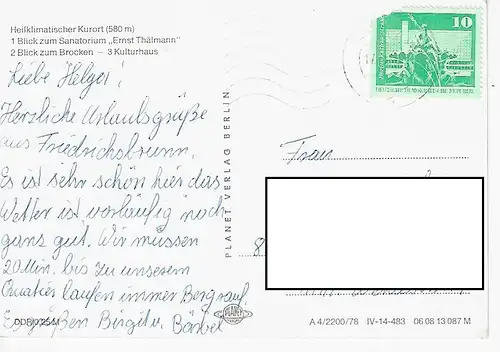 Heilklimatischer Kurort (580 m)
1 Blick zum Sanatorium „Ernst Thälmann"
2 Blick zum Brocken – 3 Kulturhaus
Liebe Helger!
Herzliche Urlaubsgrüße
aus Friedrichsbrunn.
Es ist sehr schön hier das
Wetter ist vorläufig noch
ganz gut. Wir müssen
20 Min. bis zu unserem
Quatier laufen immer Bergrauf.
Es grüßen Birgit u. Bärbel
PLANET VERLAG BERLIN
10
Frau
8
PLANET
A 4/2200/78 IV-14-483 06 08 13 087 M